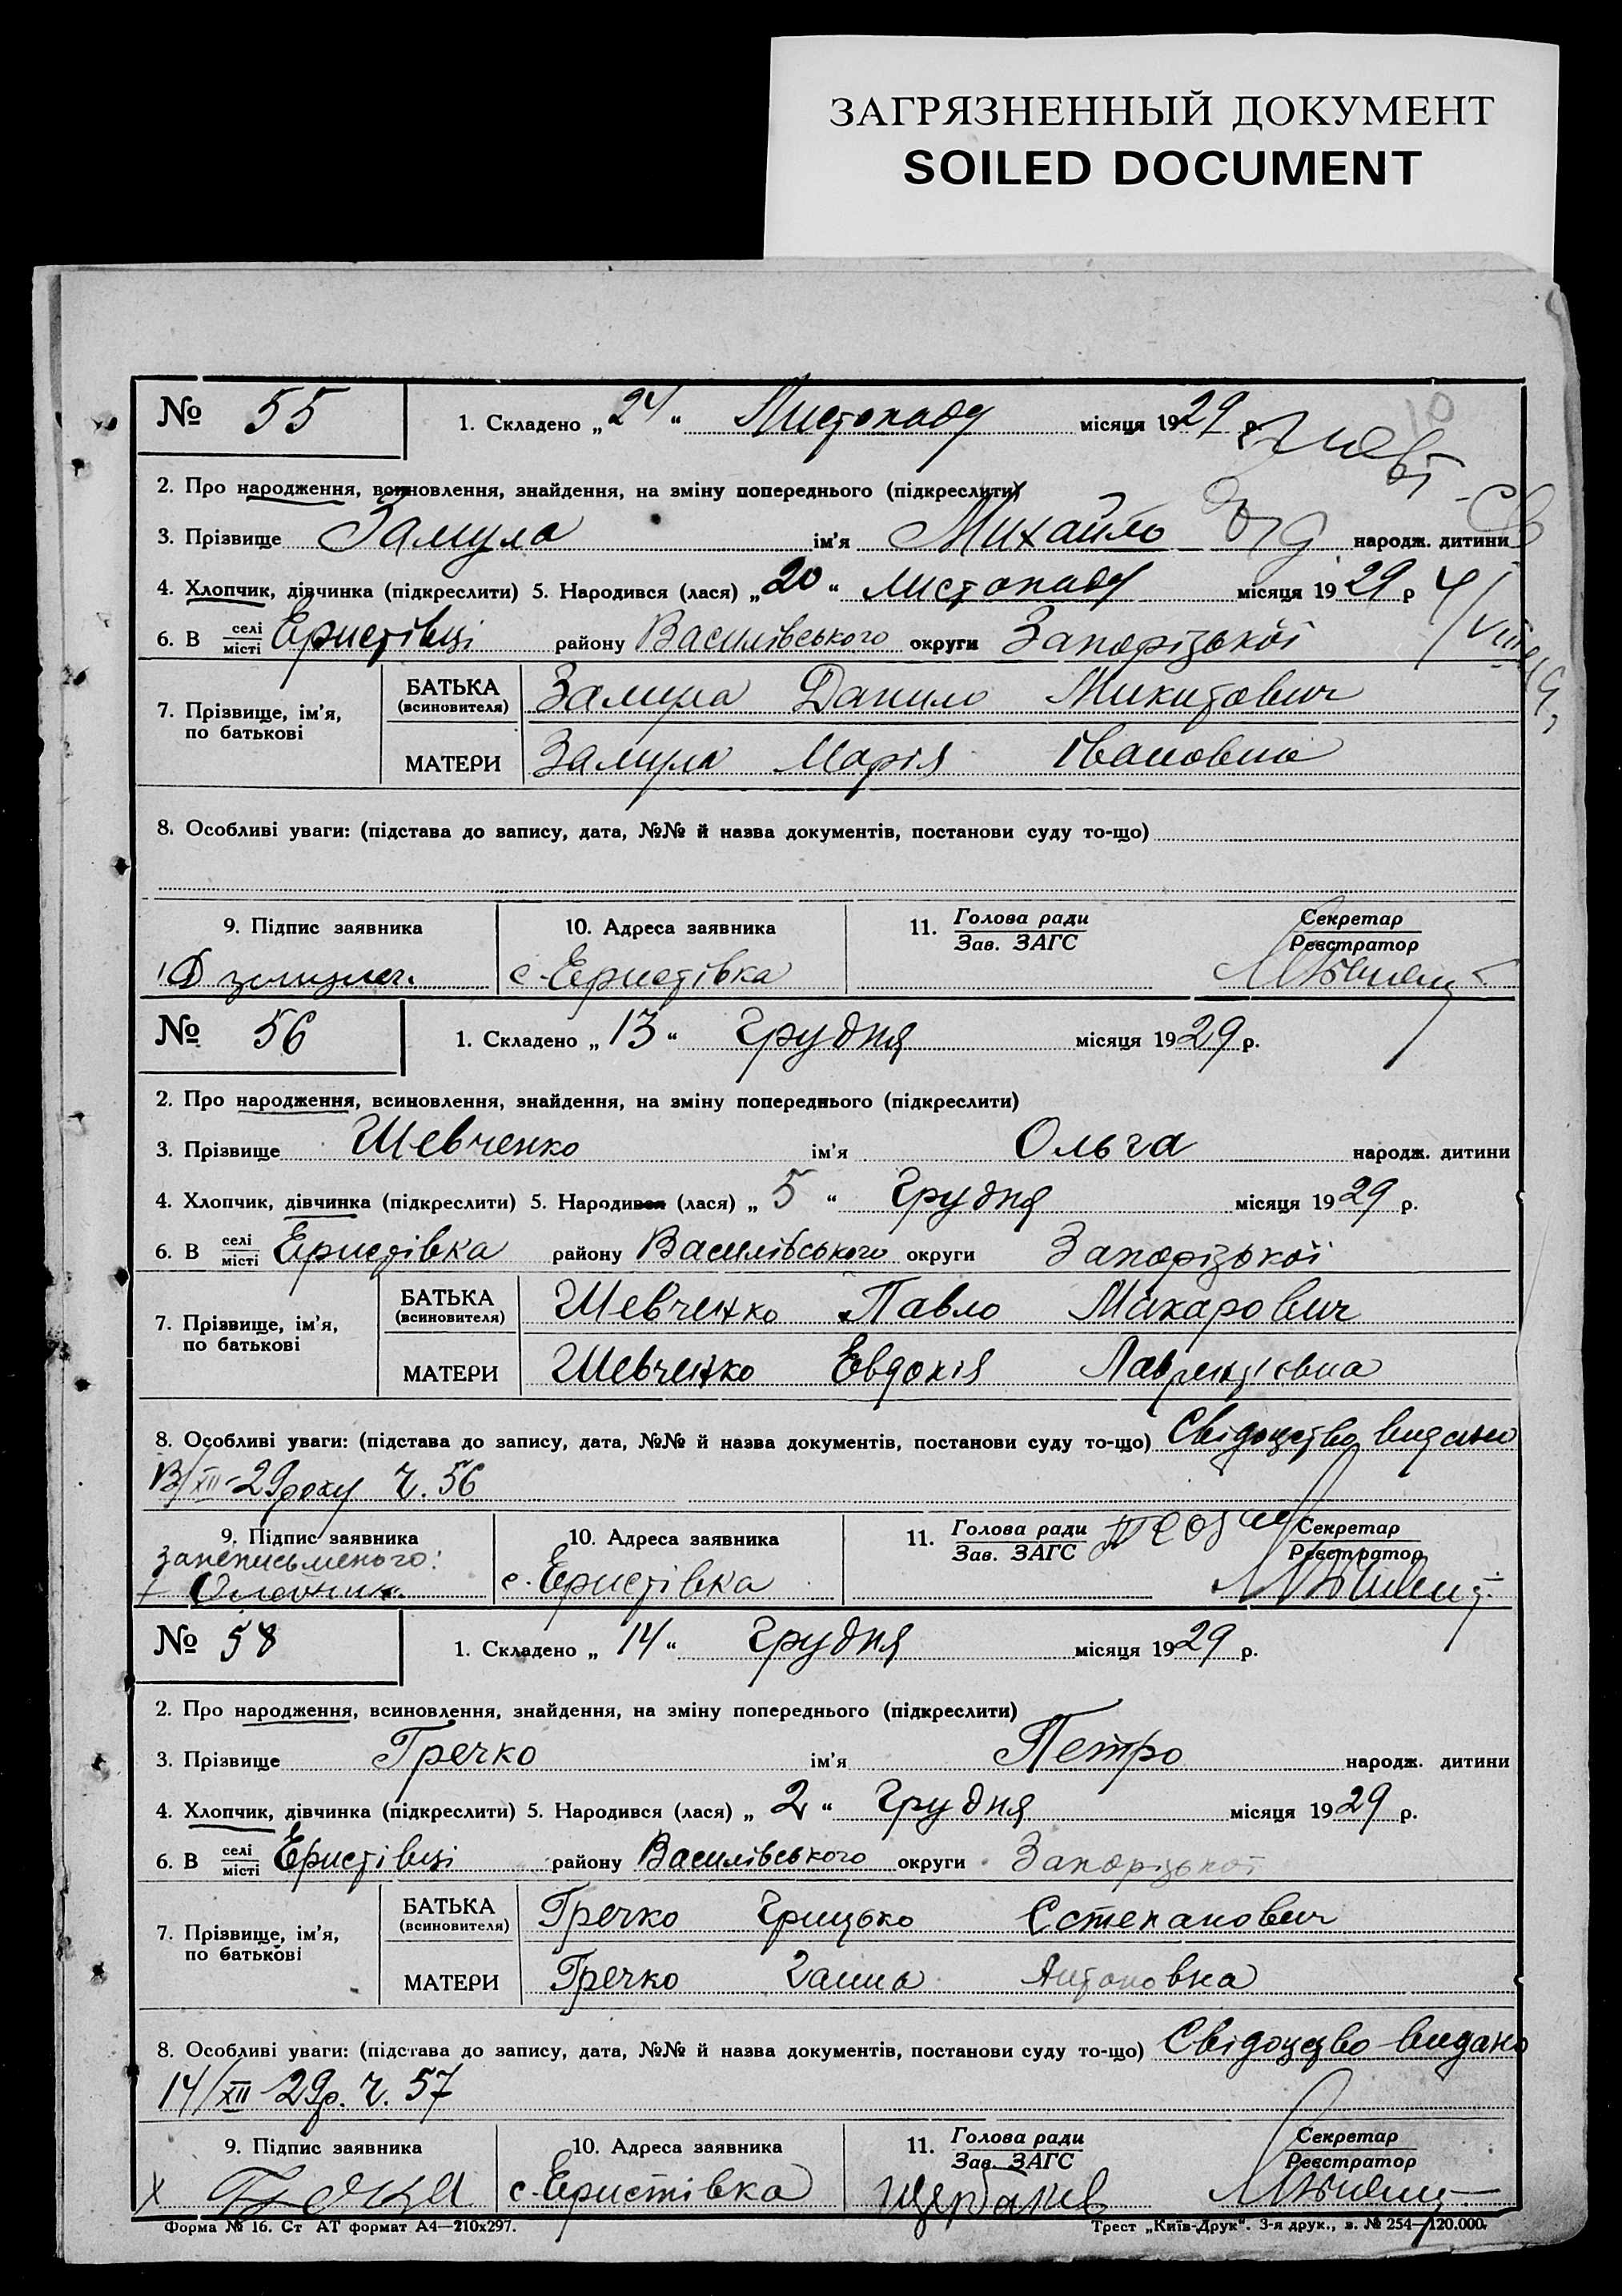 ЗАГРЯЗНЕННЫЙ ДОКУМЕНТ
SOILED DOCUMENT
№ 55 1. Складено „24“ Листопаду місяця 1929 р.
2. Про народження, всиновлення, знайдення, на зміну попереднього (підкреслити)
3. Прізвище Замула ім'я Михайло народж. дитини
4. Хлопчик, дівчинка (підкреслити) 5. Народився (лася) „20“ листопаду місяця 1929 р
6. В селі/місті Еристівці району Василівського округи Запорізької
7. Прізвище, ім'я, по батькові
БАТЬКА (всиновителя) Замула Данило Микитович
МАТЕРИ Замула Марія Івановна
8. Особливі уваги: (підстава до запису, дата, №№ й назва документів, постанови суду то-що)
9. Підпис заявника 10. Адреса заявника 11. Голова ради/Зав. ЗАГС Секретар/Реєстратор
с. Еристівка
№ 56 1. Складено „13“ Грудня місяця 1929 р.
2. Про народження, всиновлення, знайдення, на зміну попереднього (підкреслити)
3. Прізвище Шевченко ім'я Ольга народж. дитини
4. Хлопчик, дівчинка (підкреслити) 5. Народився (лася) „5“ Грудня місяця 1929 р.
6. В селі/місті Еристівка району Василівського округи Запорізької
7. Прізвище, ім'я, по батькові
БАТЬКА (всиновителя) Шевченко Павло Макарович
МАТЕРИ Шевченко Евдокія Лаврентієвна
8. Особливі уваги: (підстава до запису, дата, №№ й назва документів, постанови суду то-що) Свідоцтво видано
13/XII-29 року Ч. 56
9. Підпис заявника 10. Адреса заявника 11. Голова ради/Зав. ЗАГС Секретар/Реєстратор
за неписьменого: с. Еристівка
№ 58 1. Складено „14“ Грудня місяця 1929 р.
2. Про народження, всиновлення, знайдення, на зміну попереднього (підкреслити)
3. Прізвище Гречко ім'я Петро народж. дитини
4. Хлопчик, дівчинка (підкреслити) 5. Народився (лася) „2“ Грудня місяця 1929 р.
6. В селі/місті Еристівці району Василівського округи Запорізької
7. Прізвище, ім'я, по батькові
БАТЬКА (всиновителя) Гречко Грицько Степанович
МАТЕРИ Гречко Ганна Антоновна
8. Особливі уваги: (підстава до запису, дата, №№ й назва документів, постанови суду то-що) Свідоцтво видано
14/XII 29р. Ч. 57
9. Підпис заявника 10. Адреса заявника 11. Голова ради/Зав. ЗАГС Секретар/Реєстратор
с. Еристівка
Форма № 16. Ст АТ формат А4—210х297. Трест „Київ-Друк“. 3-я друк., з. № 254—120.000.